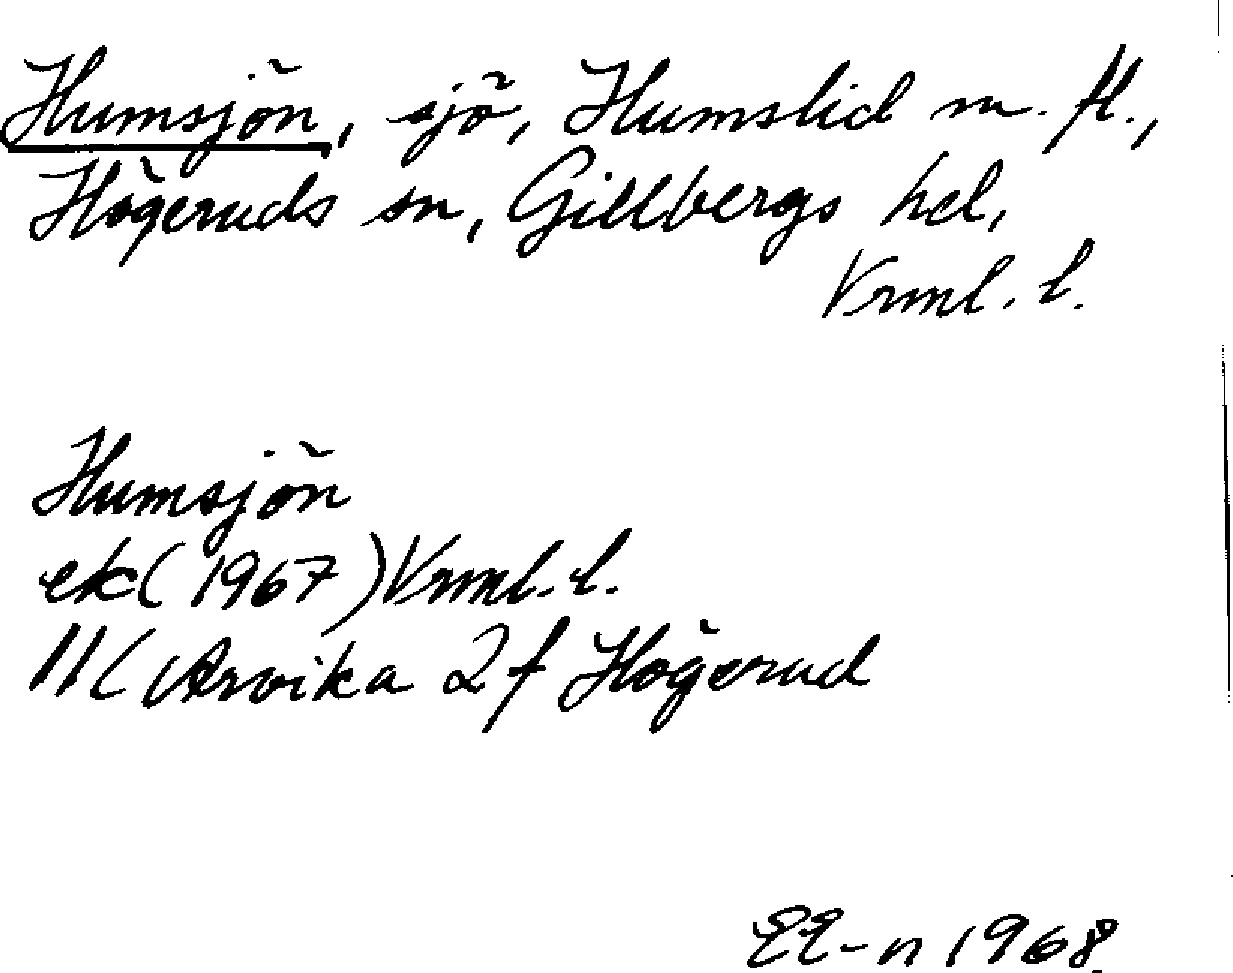 Humsjön, sjö, Humslid m. fl.,
Högeruds sn, Gillbergs hd,
Vrml. l.
Humsjön
ek (1967) Vrml. l.
11C Arvika 2f Högerud
EE-n 1968